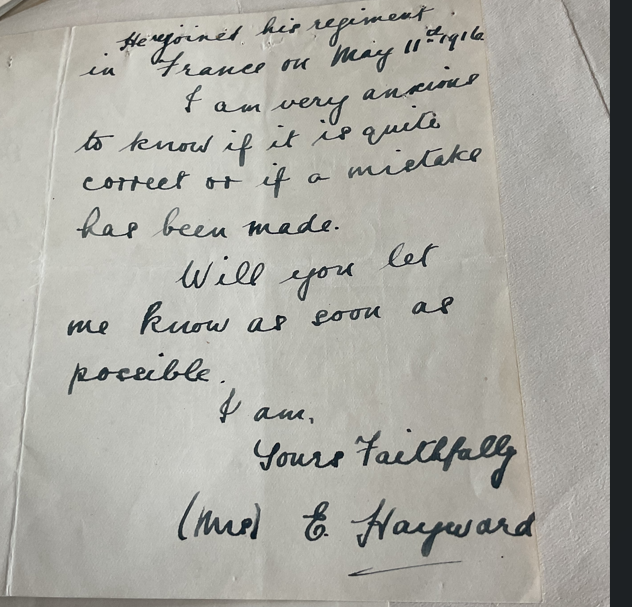 He rejoined his regiment
in France on May 11th 1916
I am very anxious
to know if it is quite
correct or if a mistake
has been made.
Will you let
me know as soon as
possible.
I am,
Yours Faithfully
(Mrs) E. Hayward